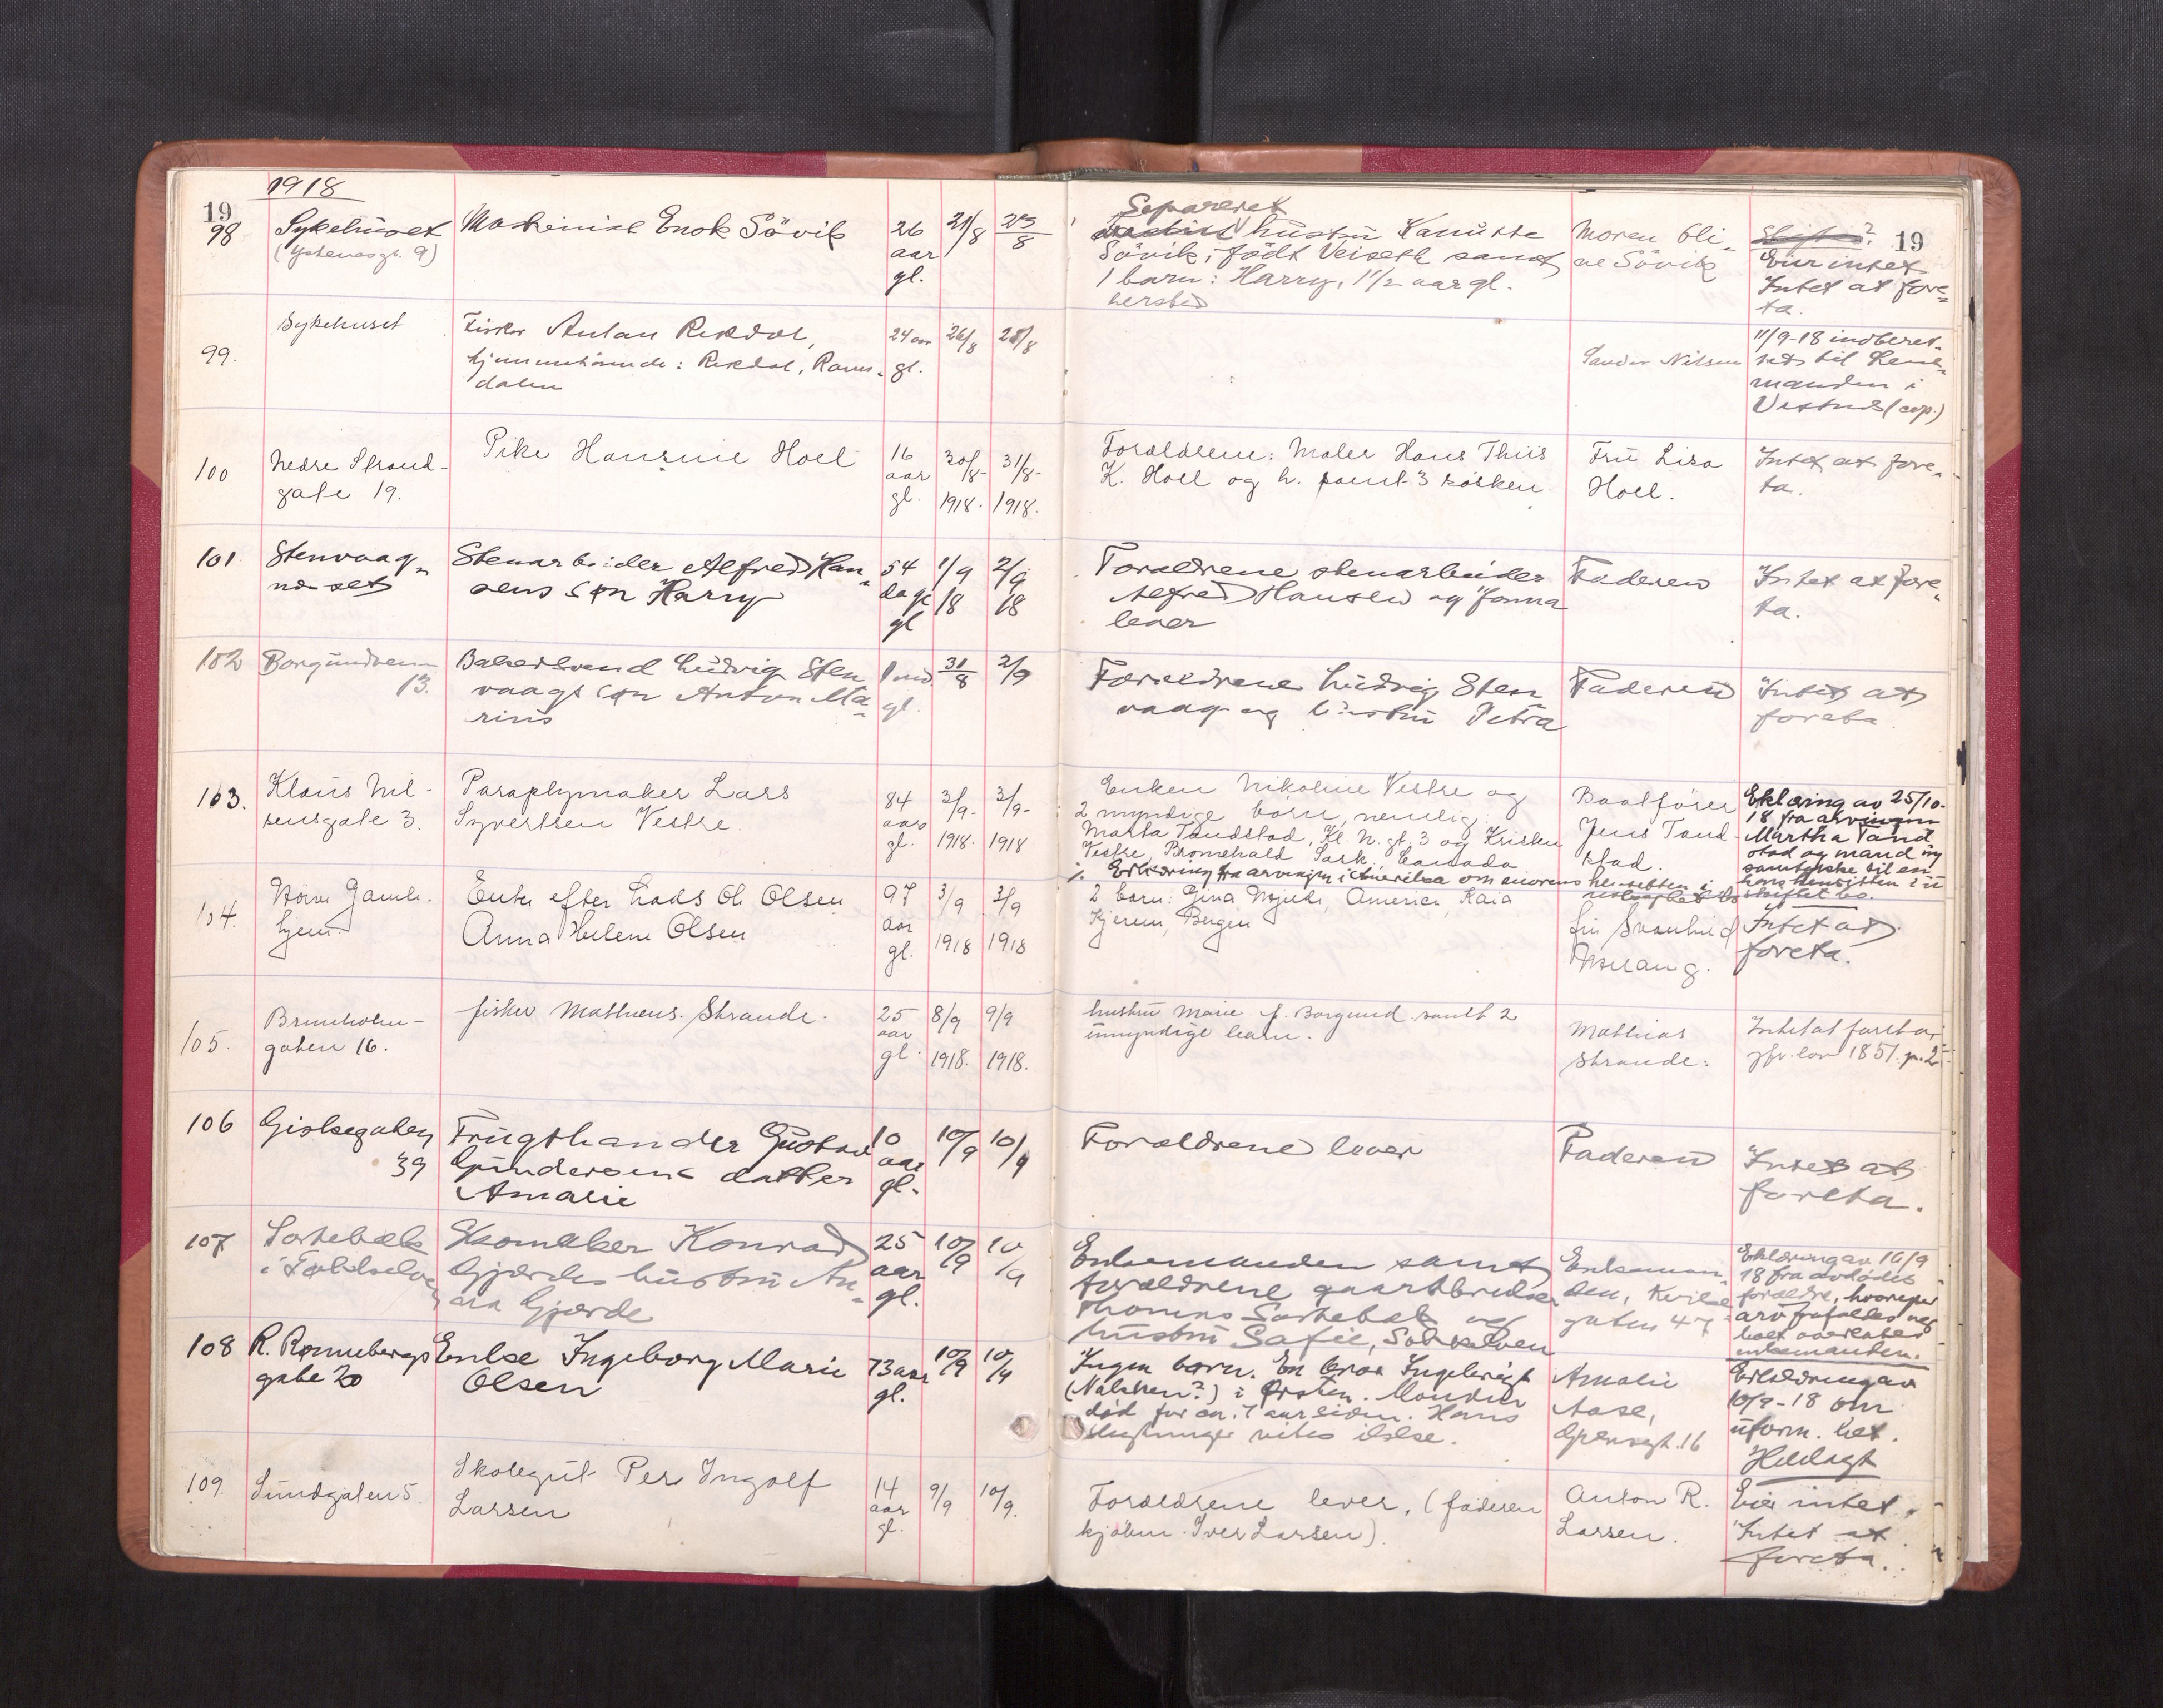 1918
19
98
Sykehuset
(Ystenesgt. 9)
Maskinist Enok Sövik
26
aar
gl.
21/8
23/8
Separeret
hustru Kanutte
Sövik, födt Veiseth samt
1 barn: Harry, 1 1/2 aar gl.
hersted
Moren Oli-
ne Sövik
Skiftes?
19
Eier intet
Intet at fore-
ta.
99.
Sykehuset
Fisker Anton Rekdal,
hjemmehörende: Rekdal, Roms-
dalen
24 aar
gl.
26/8
28/8
Sander Nilsen
11/9-18 indberet-
tet til Lens-
manden i
Vestnes (cop.)
100
Nedre Strand-
gate 19.
Pike Hansine Hoel
16
aar
gl.
30/8-
1918.
31/8-
1918.
Forældrene: Maler Hans Thiis
K. Hoel og h. samt 3 sösken
Fru Lisa
Hoel.
Intet at fore-
ta.
101
Stenvaag-
neset
Stenarbeider Alfred Han-
sens sön Harry
54
dage
gl
1/9
18
2/9
18
Forældrene stenarbeider
Alfred Hansen og Jonna
lever
Faderen
Intet at fore-
ta.
102
Borgundveien
13.
Bakersvend Ludvig Sten
vaags sön Anton Ma-
rius
1 md
gl.
31/8
2/9
Forældrene Ludvig Sten
vaag og hustru Petra
Faderen
Intet at
foreta
103.
Klaus Nil-
sensgate 3.
Paraplymaker Lars
Syvertsen Vestre.
84
aar
gl.
3/9-
1918.
3/9-
1918
Enken Nikoline Vestre og
2 myndige börn, nemlig
Marta Tandstad, Kl. N. gt. 3 og Kristen
Vestre, Bromehald Sask., Canada
Erklæring fra arvingen i Amerika om morens hensitten i
uskiftet bo
Baatförer
Jens Tand-
stad.
Erklæring av 25/10-
18 fra arvingen
Martha Tand
stad og mand og
samtykke til en
kens hensitten i u
skiftet bo.
104.
Gamle-
hjem.
Enke efter Lods Ol. Olsen
Anna Helene Olsen
97
aar
gl.
3/9
1918
3/9
1918
2 barn: Gina, America, Kaia
Kjerem, Bergen
fru Svanhild
Intet at
foreta.
105.
Brunholm-
gaten 16.
fisker Matheus Strande.
25
aar
gl.
8/9
1918.
9/9
1918.
hustru Marie f. Borgund samt 2
umyndige barn.
Mathias
Strande.
Intet at foreta,
jfr. lov 1851. p. 2
106
Giskegaten
39
Frugthandler Gustav
Gundersens datter
Amalie
10
aar
gl.
10/9
10/9
Forældrene lever
Faderen
Intet at
foreta.
107
Sortebæk
Skomaker Konrad
Gjærdes hustru An-
na Gjærde
25
aar
gl.
10/9
10/9
Enkemanden samt
forældrene gaardbruker
Thomas Sortebæk og
hustru Safie,
Enkeman-
den,
gaten 47
Erklæring av 16/9
18 fra avdödes
forældre, hvorefter
arv frafaldes og
boet overlates
enkemanden.
108
R. Rønnebergs
gate 20
Enke Ingeborg Marie
Olsen
73 aar
gl.
10/9
10/9
Ingen børn. En bror Ingebrigt
i Ørsten. Manden
død for en. 7 aar siden. Hans
slegtninge vites ikke.
Amalie
Aase,
gt. 16
Erklæring av
10/9-18 om
uform. het.
Henlagt
109.
Sundgaten 5.
Skolegut Per Ingolf
Larsen
14
aar
gl.
9/9
10/9.
Forældrene lever. (faderen
kjöbm. Iver Larsen)
Anton R.
Larsen.
Eier intet.
Intet at
foreta.